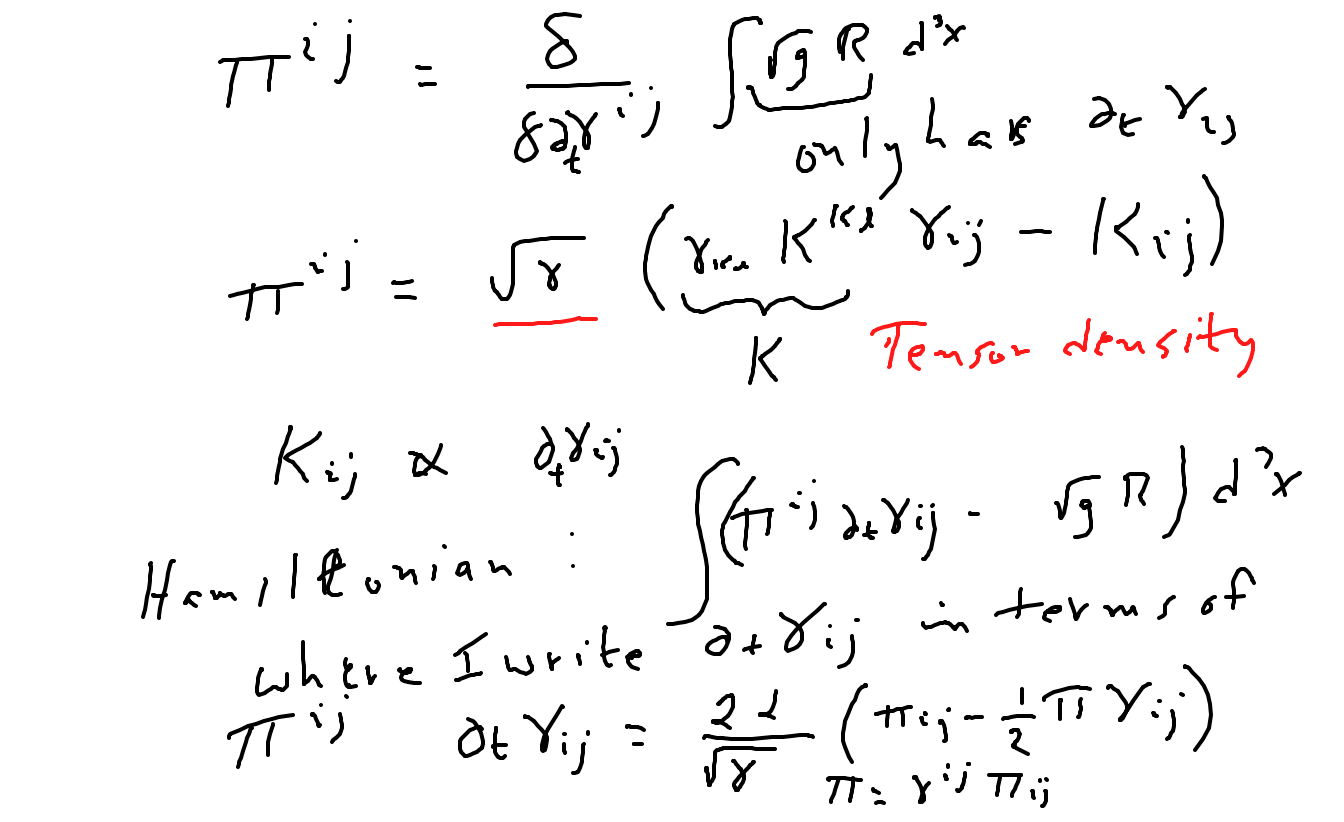 π^{ij} = δ/δ∂_tγ^{ij} ∫ √g R d³x
only has ∂_t γ_{ij}
π^{ij} = √γ (γ_{kl} K^{kl} γ_{ij} − K_{ij})
K Tensor density
K_{ij} ∝ ∂_tγ_{ij}
Hamiltonian : ∫(π^{ij} ∂_tγ_{ij} - √g R) d³x
where I write ∂_tγ_{ij} in terms of
π^{ij} ∂_tγ_{ij} = 2α/√γ (π_{ij} − 1/2 π γ_{ij})
π = γ^{ij} π_{ij}